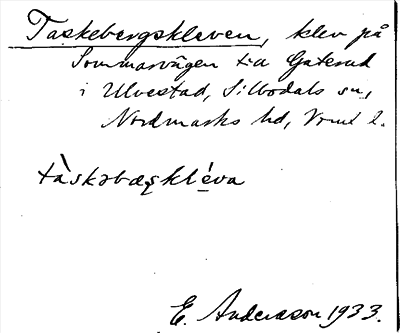 Taskebergskleven, klev på
Sommarvägen t.a Gaterud
i Ulvestad, Silbodals sn,
Nordmarks hd, Vrml l.
tàskəbæşkléva
E. Andersson 1933.